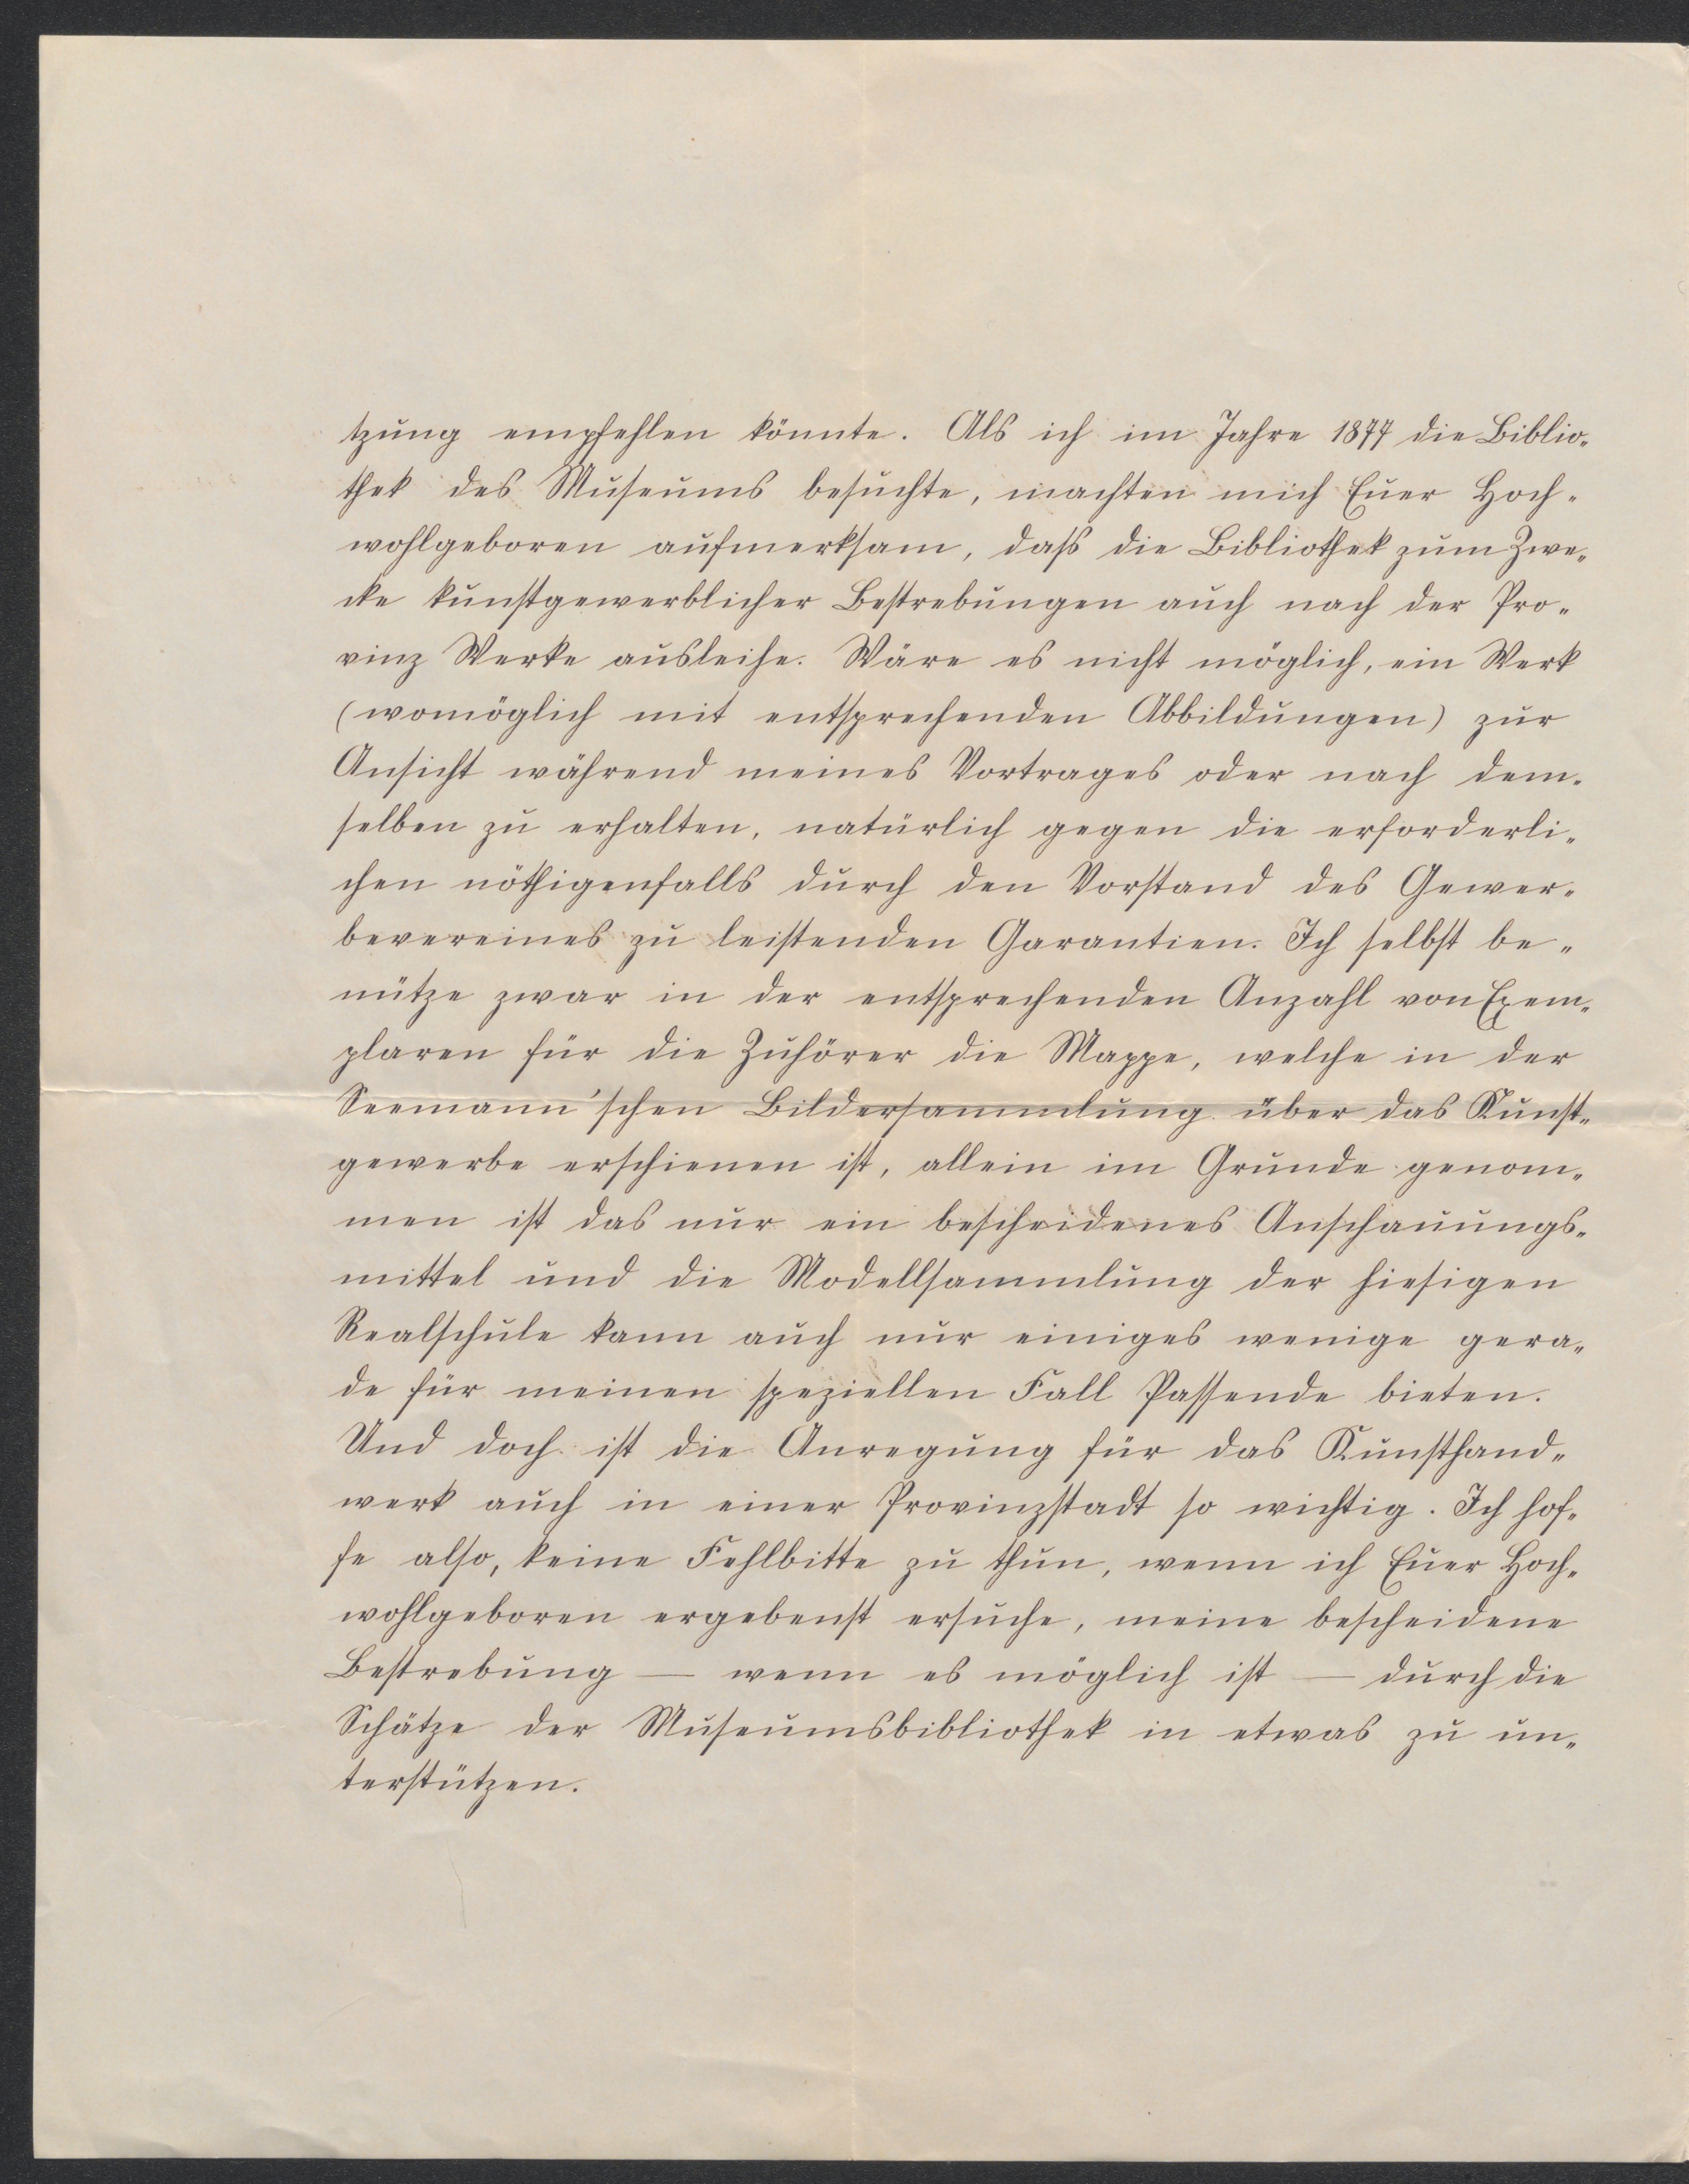 tzung empfehlen könnte. Als ich im Jahre 1877 die Biblio-
thek des Museums besuchte, machten mich Euer Hoch-
wohlgeboren aufmerksam, daß die Bibliothek zum Zwe-
cke kunstgewerblicher Bestrebungen auch nach der Pro-
vinz Werke ausleihe. Wäre es nicht möglich, ein Werk
(womöglich mit entsprechenden Abbildungen) zur
Ansicht während meines Vortrages oder nach dem-
selben zu erhalten, natürlich gegen die erforderli-
chen nöthigenfalls durch den Vorstand des Gewer-
bevereines zu leistenden Garantien. Ich selbst be-
nütze zwar in der entsprechenden Anzahl von Exem-
plaren für die Zuhörer die Mappe, welche in der
Seemann'schen Bildersammlung über das Kunst-
gewerbe erschienen ist, allein im Grunde genom-
men ist das nur ein bescheidenes Anschauungs-
mittel und die Modellsammlung der hiesigen
Realschule kann auch nur einiges wenige gera-
de für meinen speziellen Fall Passende bieten.
Und doch ist die Anregung für das Kunsthand-
werk auch in einer Provinzstadt so wichtig. Ich hof-
fe also, keine Fehlbitte zu thun, wenn ich Euer Hoch-
wohlgeboren ergebenst ersuche, meine bescheidene
Bestrebung — wenn es möglich ist — durch die
Schätze der Museumsbibliothek in etwas zu un-
terstützen.